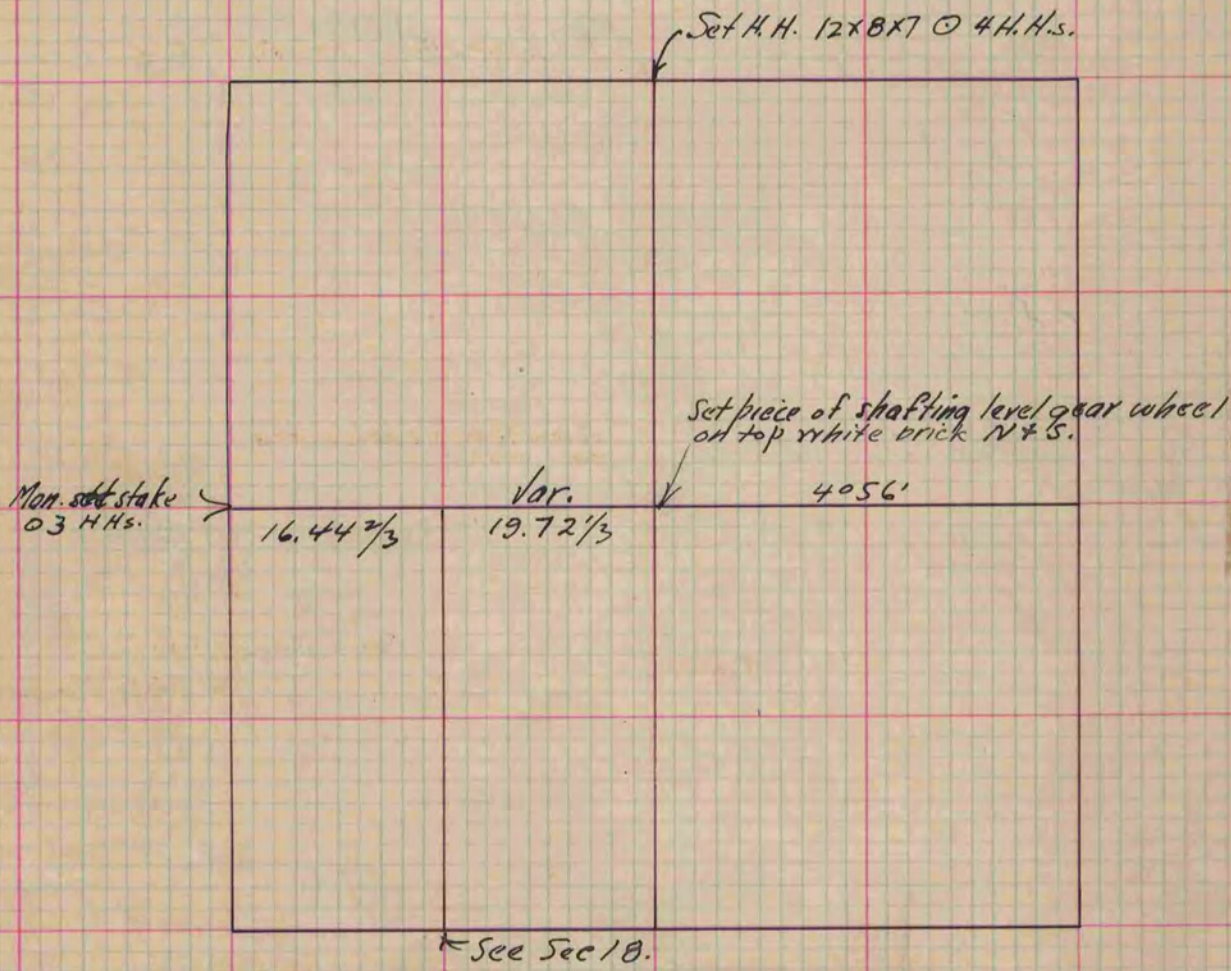 Set H.H. 12x8x7 ⊙ 4 H.H.s.
Set piece of shafting level gear wheel
on top white brick N & S.
Mon. set stake
⊙ 3 HHs.
Var.
4°56'
16.44 2/3
19.72 1/3
See Sec 18.